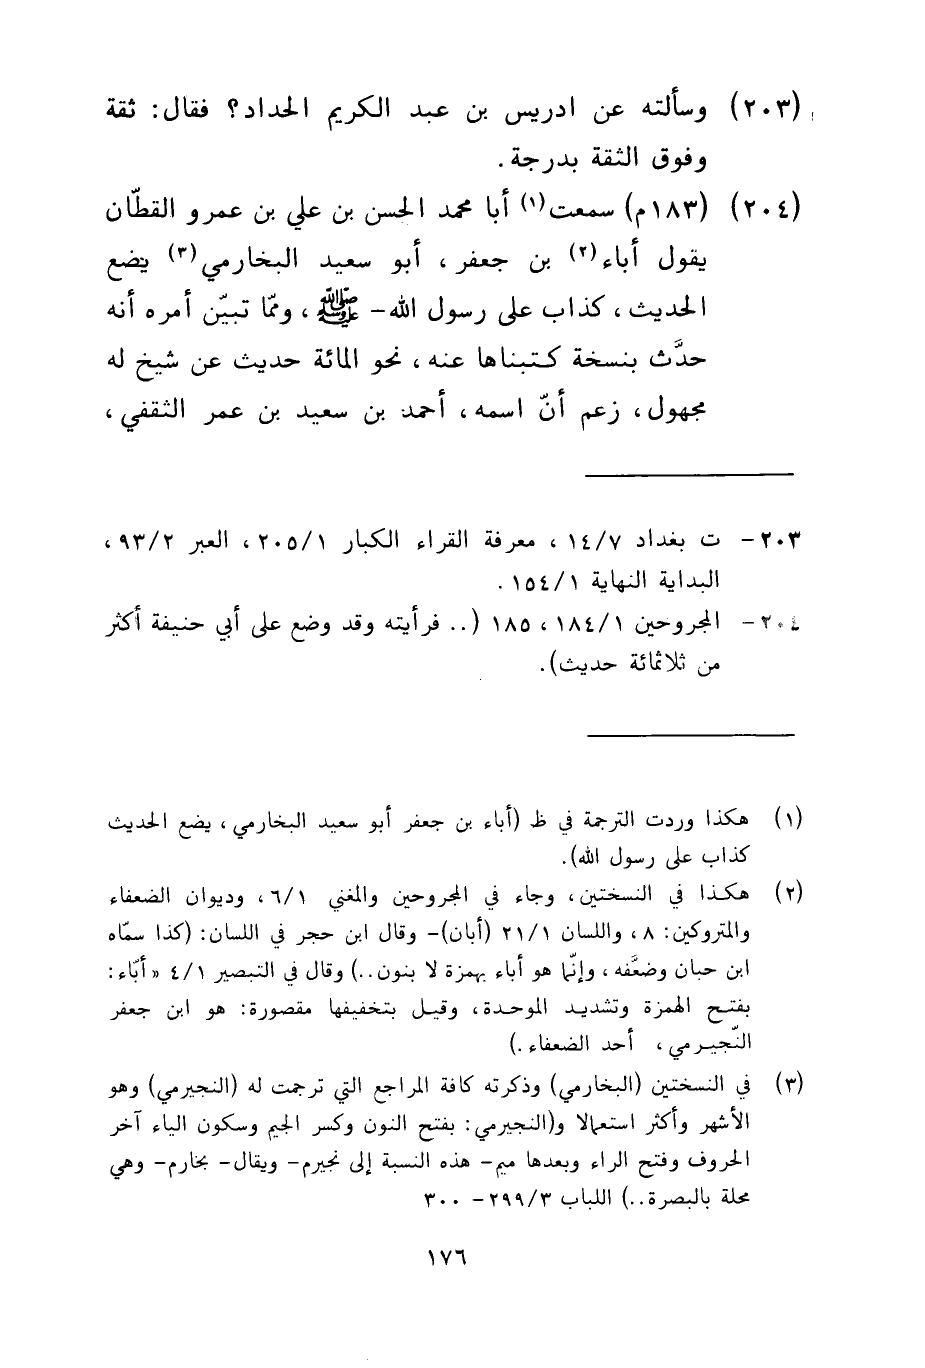 (٢٠٣) وسألته عن ادريس بن عبد الكريم الحداد؟ فقال: ثقة
وفوق الثقة بدرجة.
(٢٠٤) (١٨٣م) سمعت(١) أبا محمد الحسن بن علي بن عمرو القطّان
يقول أباء(٢) بن جعفر، أبو سعيد البخارمي(٣) يضع
الحديث، كذاب على رسول الله- ﷺ، وممّا تبيّن أمره أنه
حدَّث بنسخة كتبناها عنه، نحو المائة حديث عن شيخ له
مجهول، زعم أنّ اسمه، أحمد بن سعيد بن عمر الثقفي،
٢٠٣- ت بغداد ١٤/٧، معرفة القراء الكبار ٢٠٥/١، العبر ٩٣/٢،
البداية النهاية ١٥٤/١.
٢٠٤- المجروحين ١٨٤/١، ١٨٥ (.. فرأيته وقد وضع على أبي حنيفة أكثر
من ثلاثمائة حديث).
(١) هكذا وردت الترجمة في ظ (أباء بن جعفر أبو سعيد البخارمي، يضع الحديث
كذاب على رسول الله).
(٢) هكذا في النسختين، وجاء في المجروحين والمغني ٦/١، وديوان الضعفاء
والمتروكين: ٨، واللسان ٢١/١ (أبان)- وقال ابن حجر في اللسان: (كذا سمّاه
ابن حبان وضعَّفه، وإنّما هو أباء بهمزة لا بنون..) وقال في التبصير ٤/١ «أبّاء:
بفتح الهمزة وتشديد الموحدة، وقيل بتخفيفها مقصورة: هو ابن جعفر
النّجيرمي، أحد الضعفاء.)
(٣) في النسختين (البخارمي) وذكرته كافة المراجع التي ترجمت له (النجيرمي) وهو
الأشهر وأكثر استعمالا و(النجيرمي: بفتح النون وكسر الجيم وسكون الياء آخر
الحروف وفتح الراء وبعدها ميم- هذه النسبة إلى نجيرم- ويقال- بخارم- وهي
محلة بالبصرة..) اللباب ٢٩٩/٣- ٣٠٠
١٧٦